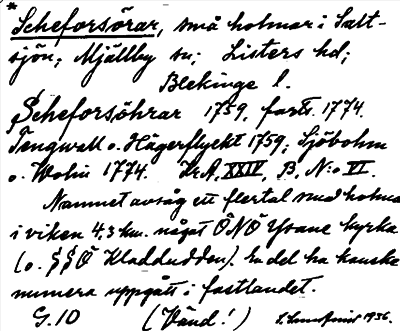 * Scheforsörar, små holmar i Salt-
sjön; Mjällby sn; Listers hd;
Blekinge l.
Scheforsöhrar 1759, fastst. 1774.
Tengwall o. Hägerflyckt 1759; Sjöbohm
o. Wolin 1774. Kr. A, XXIV, B, N:o VI.
Namnet avsåg ett flertal små holmar
i viken 4,3 km. något ÖNÖ Ysane kyrka
(o. SSÖ Kladdudden). En del ha kanske
numera uppgått i fastlandet.
G. 10 (Vänd!) 1936.